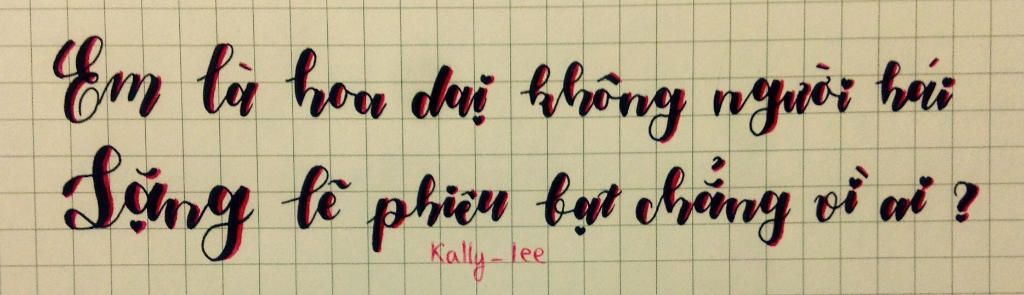 Em là hoa dại không người hái
Lặng lẽ phiêu bạt chẳng vì ai ?
Kally_lee